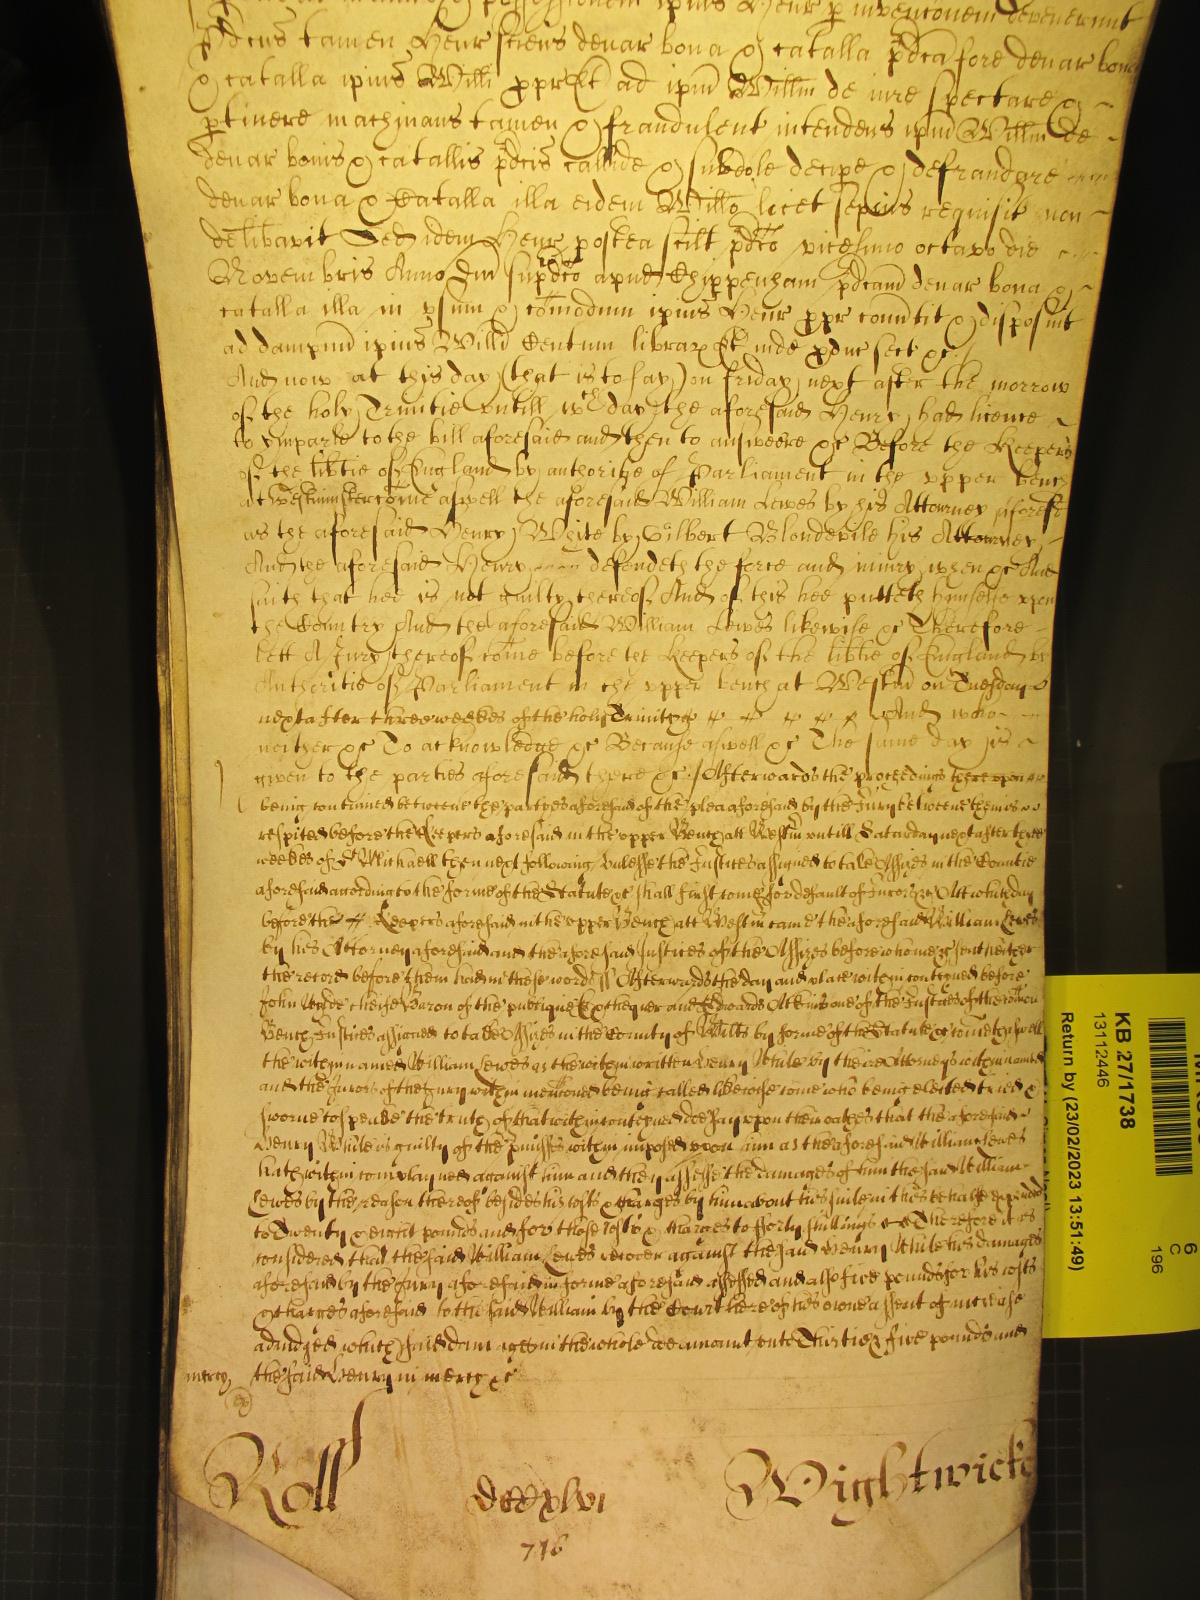 Pdcus tamen Henr sciens denar bona & catalla pdca fore denar bona
& catalla ipius Willi ppr Et ad ipm Willm de iure spectare &
ptinere machinans tamen & fraudulent intendens ipm Willm de
denar bonis & catallis pdcis callide & subdole decipe & defraudare
denar bona & Catalla illa eidem Willo licet sepius requisit non
delibavit Sed idem Henr postea scilt pdco vicesimo octavo die
Novembris Anno Dm supdco apud Chippenham pdcam denar bona &
catalla illa in usum & comodum ipius Henr ppr convtit & disposuit
ad dampnu ipius Willi Centum librar Et inde pduc sect &c
And now at this day (that is to say) on friday next after the morrow
of the holy Trinitie untill wch day the aforesaid Henry had licence
to imparle to the bill aforesaid and then to answeere &c Before the Keepers
of the libtie of England by authoritie of Parliament in the upper bench
at Westminster come aswell the aforesaid William Lewes by his Attorney aforesd
as the aforesaid Henry White by Gilbert Blondevile his Attorney
And the aforesaid Henry defendeth the force and iniury when &c And
saith that hee is not guilty thereof And of this hee putteth himselfe upon
the Country And the aforesaid William Lewes likewise &c Therefore
lett A Jury thereof come before the Keepers of the libtie of England by
Authoritie of Parliament in the upper bench at Westm on Tuesday
next after three weekes of the holy Trinity And who
neither &c To acknowledge &c Because aswell &c The same day is
given to the parties aforesaid there &c / Afterwards the proceedings thereupon
being continued betweene the partyes aforesaid of the plea aforesaid by the Jury betweene them
respited before the Keepers aforesaid in the upper Bench att Westm untill Saturday next after three
weekes of St Michaell then next following Unlesse the Justices assigned to take Assizes in the Countie
aforesaid according to the forme of the Statute &c shall first come for default of Jurors &c Att which day
before the Keepers aforesaid in the upper Bench att Westm came the aforesaid William Lewes
by his Attorney aforesaid and the aforesaid Justices of the Assizes before whome &c sent hither
the record before them had in these words ss Afterwards the day and place within conteyned before
John Wylde cheife Baron of the publique Exchequer and Edward Atkins one of the Justices of the common
Bench Justices assigned to take Assizes in the County of Wilts by forme of the Statute &c cometh aswell
the within named William Lewes as the within written Henry White by their Attorneys within named
and the Jurors of the Jury within menconed being called likewise come who being elected tried &
sworne to speake the truth of that within conteyned doe say upon their oathes that the aforesaid
Henry White is guilty of the pmisses within imposed upon him as the aforesaid William Lewes
hath within complayned against him and they assesse the damages of him the said William
Lewes by the reason thereof besides his costs & charges by him about his suite in this behalfe expended
to Twenty & eight pounds and for those costs & charges to fforty shillings Therefore it is
considered that the said William Lewes recover against the said Henry White his damages
aforesaid by the Jury aforesaid in forme aforesaid assessed and also five pounds for his costs
& charges aforesaid to the said William by the Court here of his owne assent of increase
adiudged which said damages in the whole doe amount unto Thirtie & five pounds and
mercy the said Henry in mercy &c
Roll dccxlvi Wightwick
746
KB 27/1738
13112446
Return by (23/02/2023 13:51:49)
6
C
196